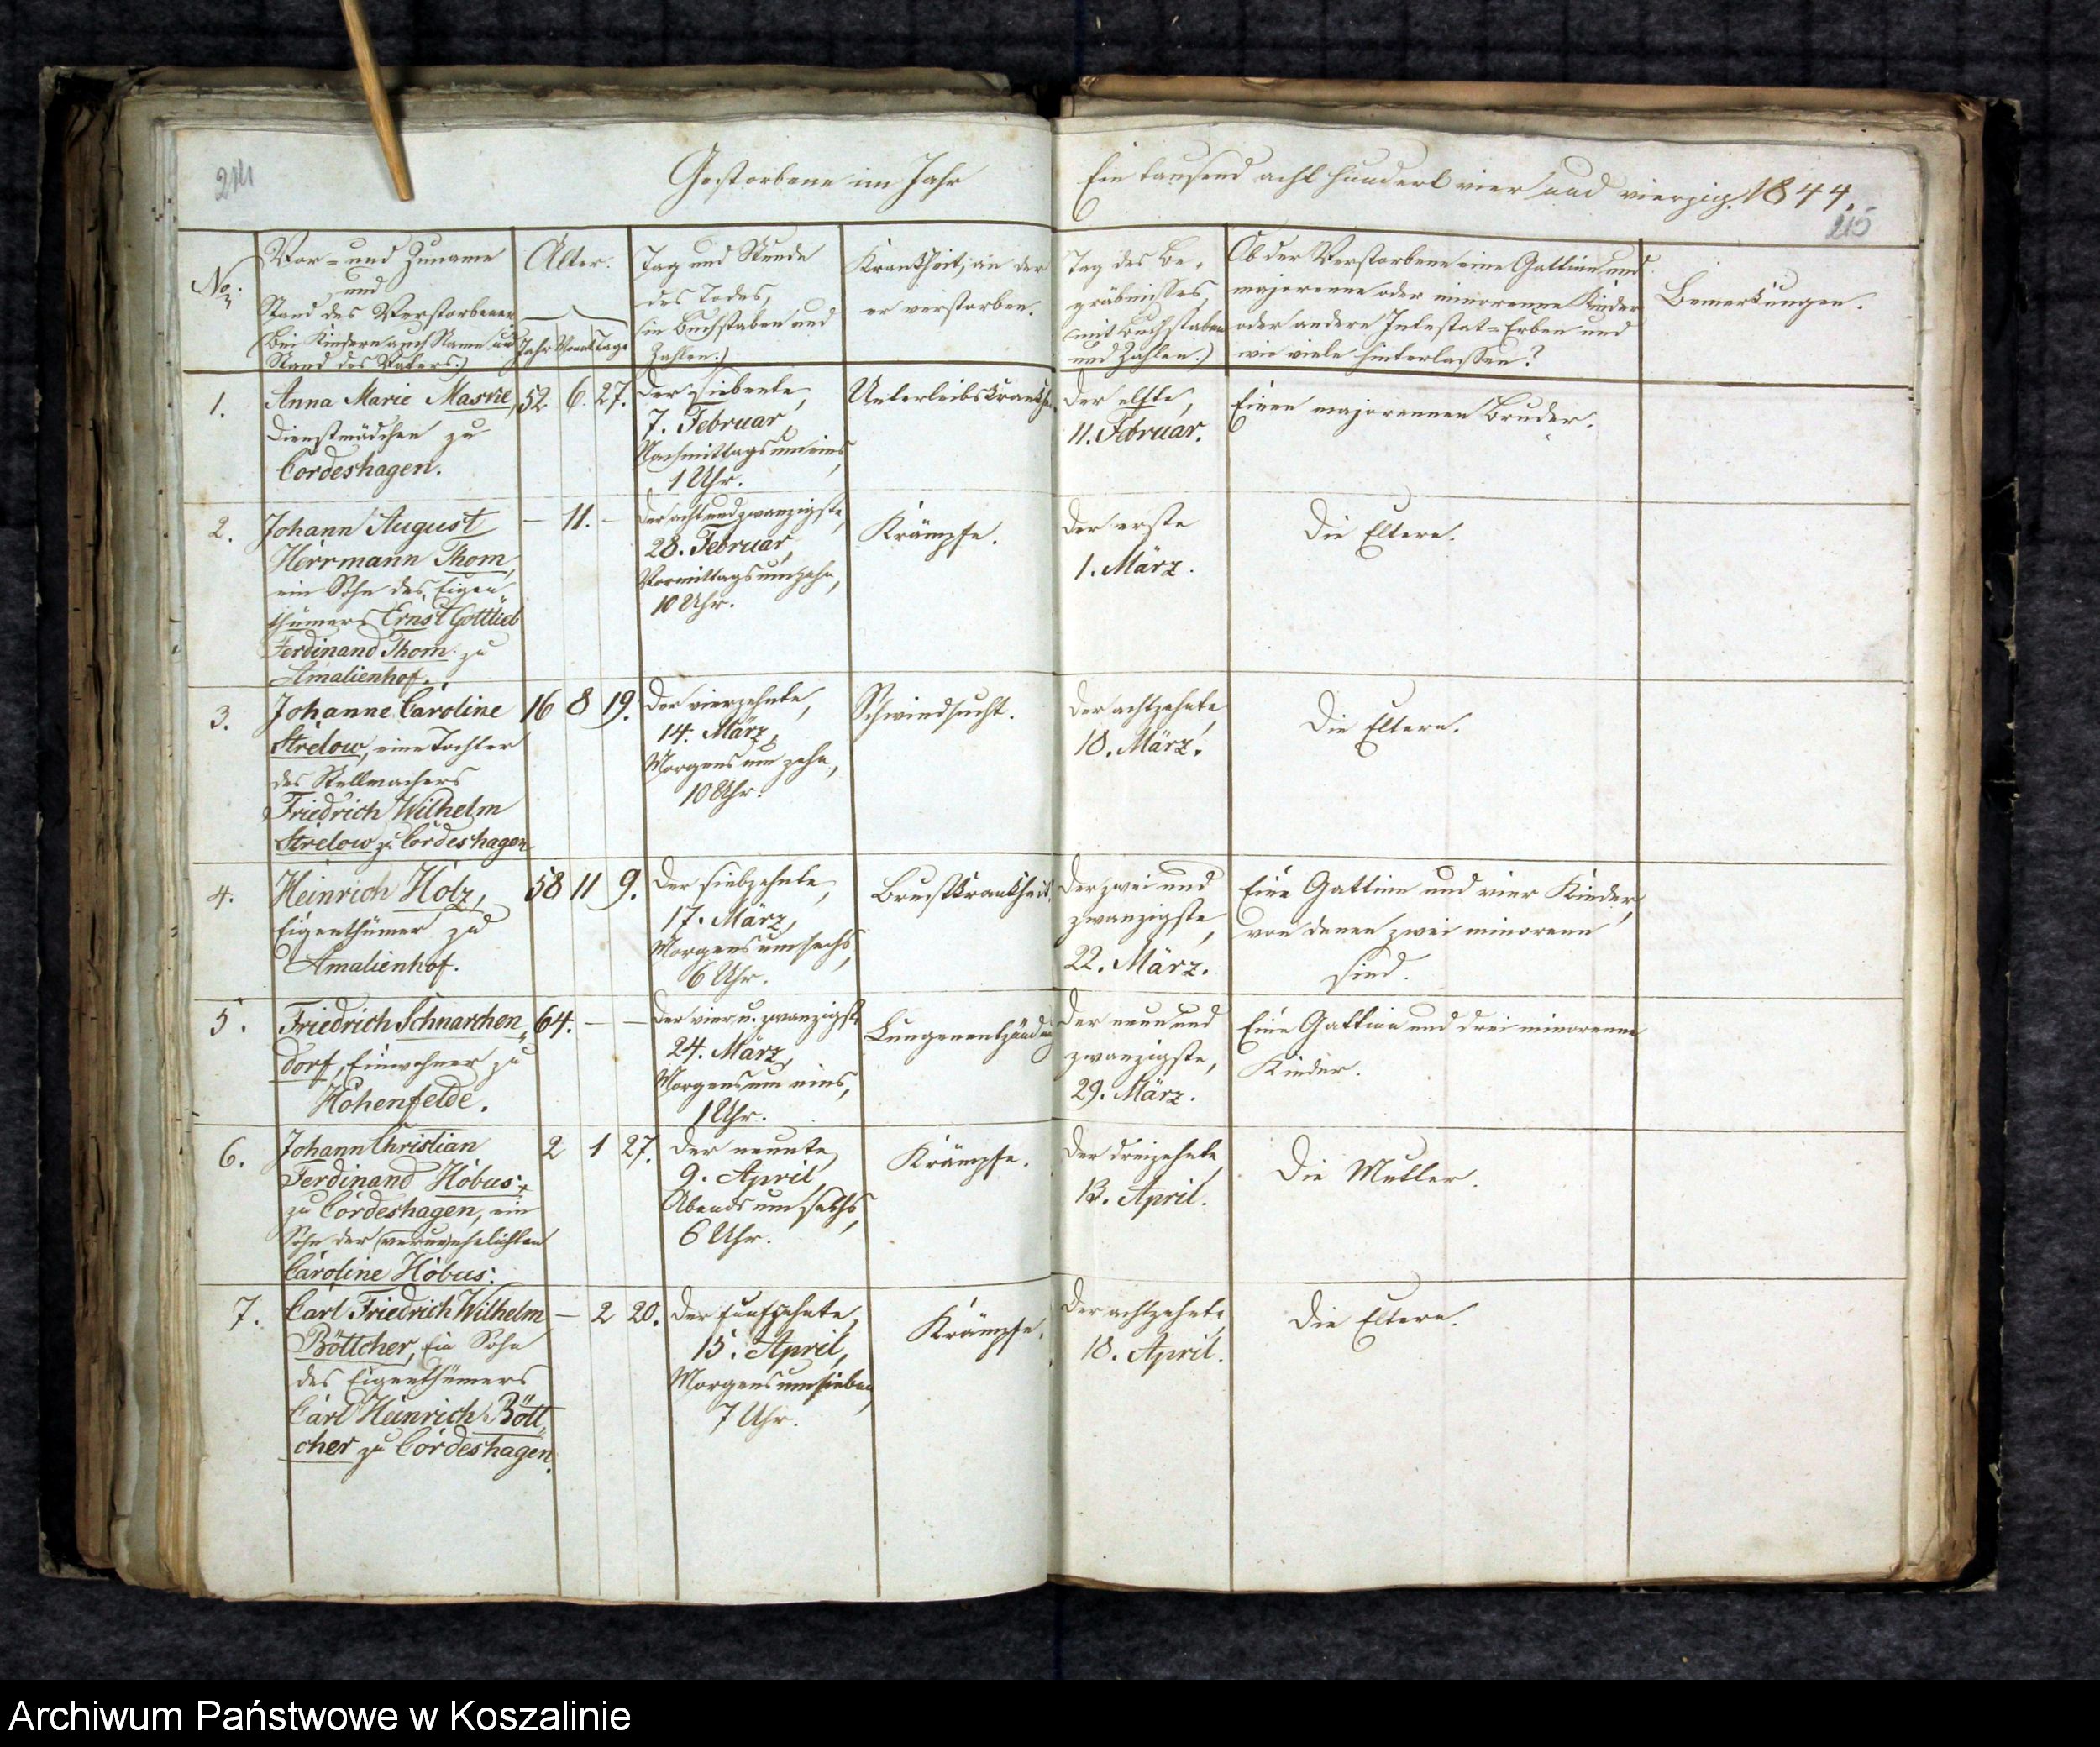 214
Gestorbene im Jahr
Ein tausend acht hundert vier und vierzig. 1844.
215
No:
Vor- und Zuname
und
Stand des Verstorbenen
(bei Kindern auch Name und
Stand des Vaters.)
Alter.
Jahr Monat Tage
Tag und Stunde
des Todes,
(in Buchstaben und
Zahlen.)
Krankheit, an der
er verstorben.
Tag des Be-
gräbnisses,
(mit Buchstaben
und Zahlen.)
Ob der Verstorbene eine Gattinn und
majorenne oder minorenne Kinder
oder andere Intestat-Erben und
wie viele hinterlassen?
Bemerkungen.
1.
Anna Marie Maske,
Dienstmädchen zu
Cordeshagen.
52 6. 27.
Der siebente,
7. Februar,
Nachmittags um eins,
1 Uhr.
Unterleibskrankh.
Der elfte,
11. Februar.
Einen majorennen Bruder.
2.
Johann August
Herrmann Thom,
ein Sohn des Eigen-
thümers Ernst Gottlieb
Ferdinand Thom zu
Amalienhof.
— 11. —
Der acht und zwanzigste,
28. Februar,
Vormittags um zehn,
10 Uhr.
Krämpfe.
Der erste
1. März.
Die Eltern.
3.
Johanne Caroline
Strelow, eine Tochter
des Stellmachers
Friedrich Wilhelm
Strelow zu Cordeshagen
16 8 19.
Der vierzehnte,
14. März,
Morgens um zehn,
10 Uhr.
Schwindsucht.
Der achtzehnte,
18. März.
Die Eltern.
4.
Heinrich Holz,
Eigenthümer zu
Amalienhof.
58 11 9.
Der siebzehnte,
17. März,
Morgens um sechs,
6 Uhr.
Brustkrankheit.
Der zwei und
zwanzigste,
22. März.
Eine Gattinn und vier Kinder,
von denen zwei minorenn
sind.
5.
Friedrich Schnarchen-
dorf, Einwohner zu
Hohenfelde.
64. — —
Der vier u. zwanzigste
24. März,
Morgens um eins,
1 Uhr.
Lungenentzündung
Der neun und
zwanzigste,
29. März.
Eine Gattinn und drei minorenne
Kinder.
6.
Johann Christian
Ferdinand Hobus
zu Cordeshagen, ein
Sohn der (verun)ehelichten
Caroline Hobus.
2 1 27.
Der neunte,
9. April,
Abends um sechs,
6 Uhr.
Krämpfe.
Der dreizehnte,
13. April.
Die Mutter.
7.
Carl Friedrich Wilhelm
Böttcher, ein Sohn
des Eigenthümers
Carl Heinrich Bött-
cher zu Cordeshagen.
— 2 20.
Der funfzehnte,
15. April,
Morgens um sieben,
7 Uhr.
Krämpfe.
Der achtzehnte,
18. April.
Die Eltern.
Archiwum Państwowe w Koszalinie